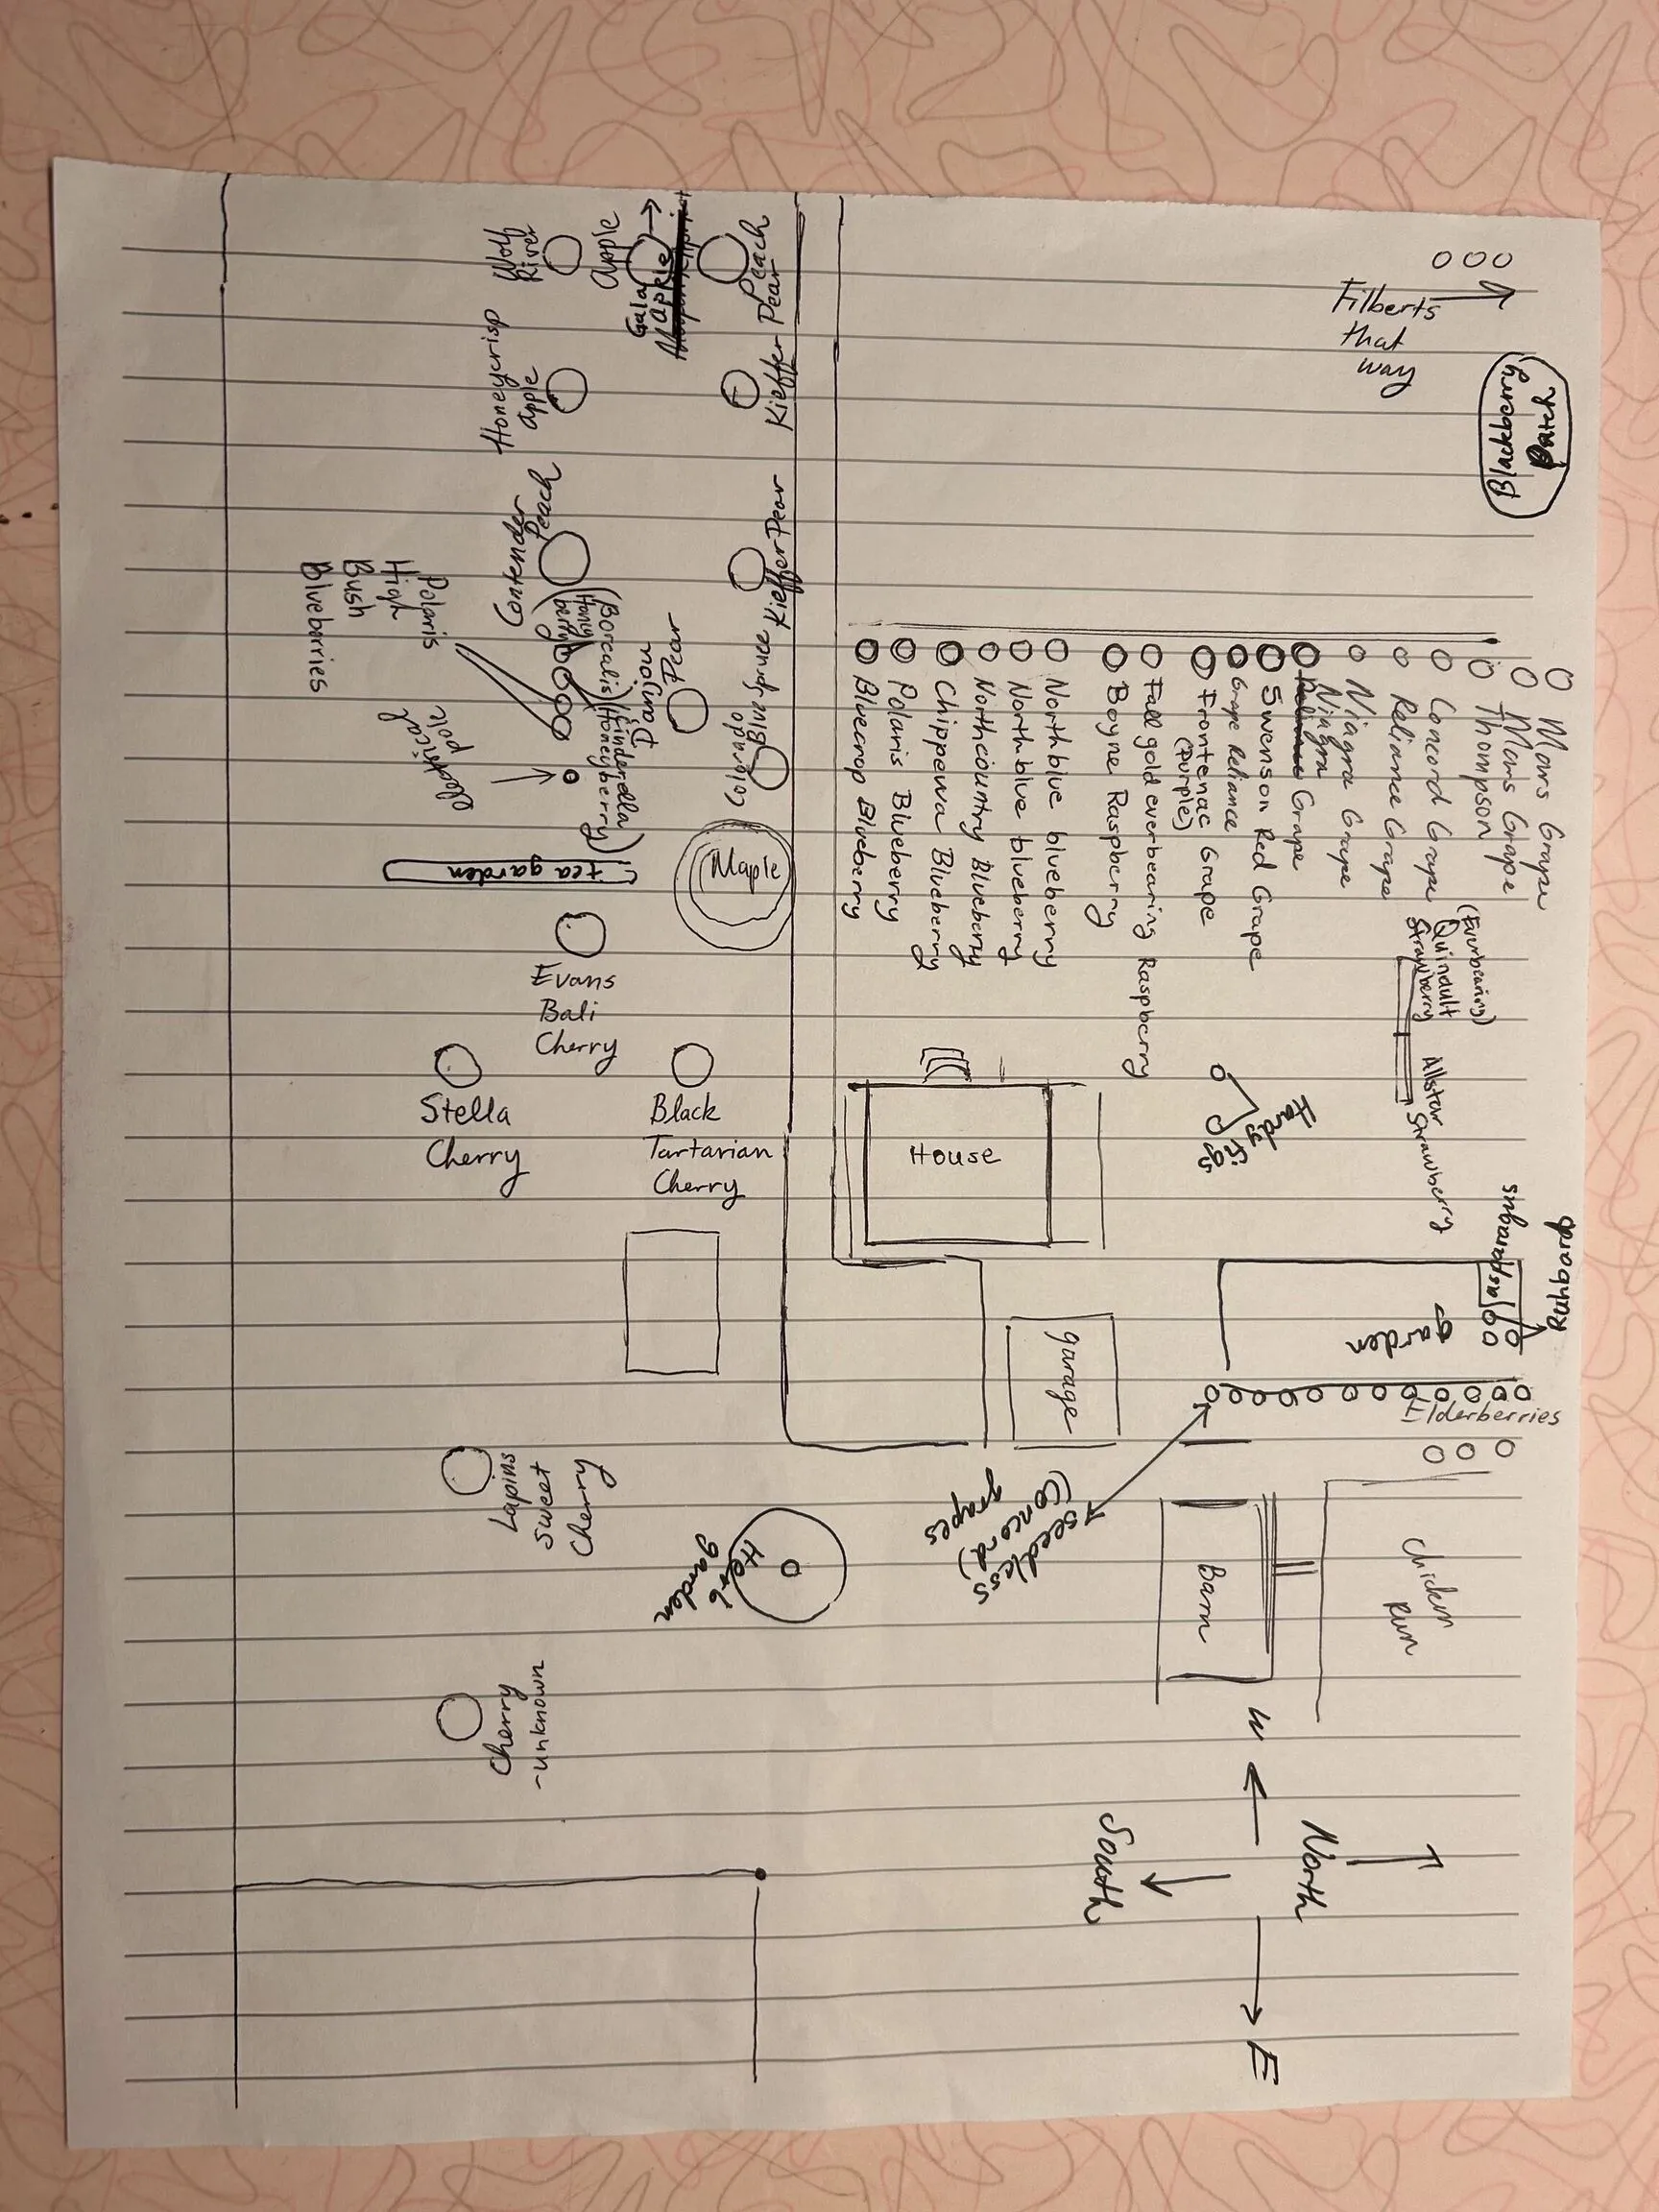 Filberts
that
way
Blackberry
Patch
Wolf
River
Apple
Gala
Apple
Peach
Honeycrisp
apple
Kieffer Pear
Contender
Peach
Kieffer Pear
Polaris
High
Bush
Blueberries
(Borealis)
Honey
berry
(Cinderella
Honeyberry)
Pear
Colorado
Blue Spruce
electrical
pole
tea garden
Maple
Mars Grape
Mars Grape
Thompson
Concord Grape
Reliance Grape
Niagra Grape
Niagra Grape
Swenson Red Grape
Grape Reliance
Frontenac Grape
(Purple)
Fall gold everbearing Raspberry
Boyne Raspberry
Northblue blueberry
Northblue blueberry
Northcountry Blueberry
Chippewa Blueberry
Polaris Blueberry
Bluecrop Blueberry
(Everbearing)
Quinault
Strawberry
Allstar Strawberry
Evans
Bali
Cherry
Stella
Cherry
Black
Tartarian
Cherry
House
Hardy
figs
Asparagus
Ruhbarb
garden
garage
Elderberries
seedless
(Concord)
grapes
Lapins
Sweet
Cherry
Herb
garden
Barn
Chicken
Run
Cherry
-unknown
W
North
South
E